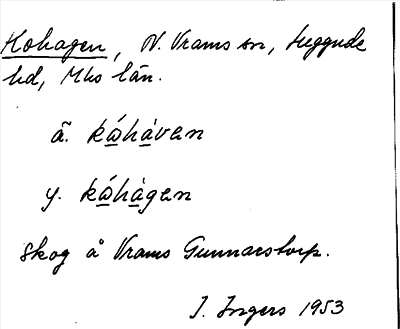 Kohagen, N. Vrams sn, Luggude
hd, Mhs län.
ä. kὼ̲hà̲ven
y. kώ̲hà̲gen
Skog å Vrams Gunnarstorp.
I. Ingers 1953